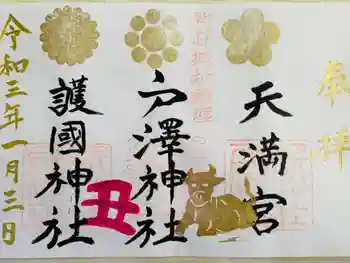 奉拝
天満宮
戸澤神社
護國神社
丑
令和三年一月三日